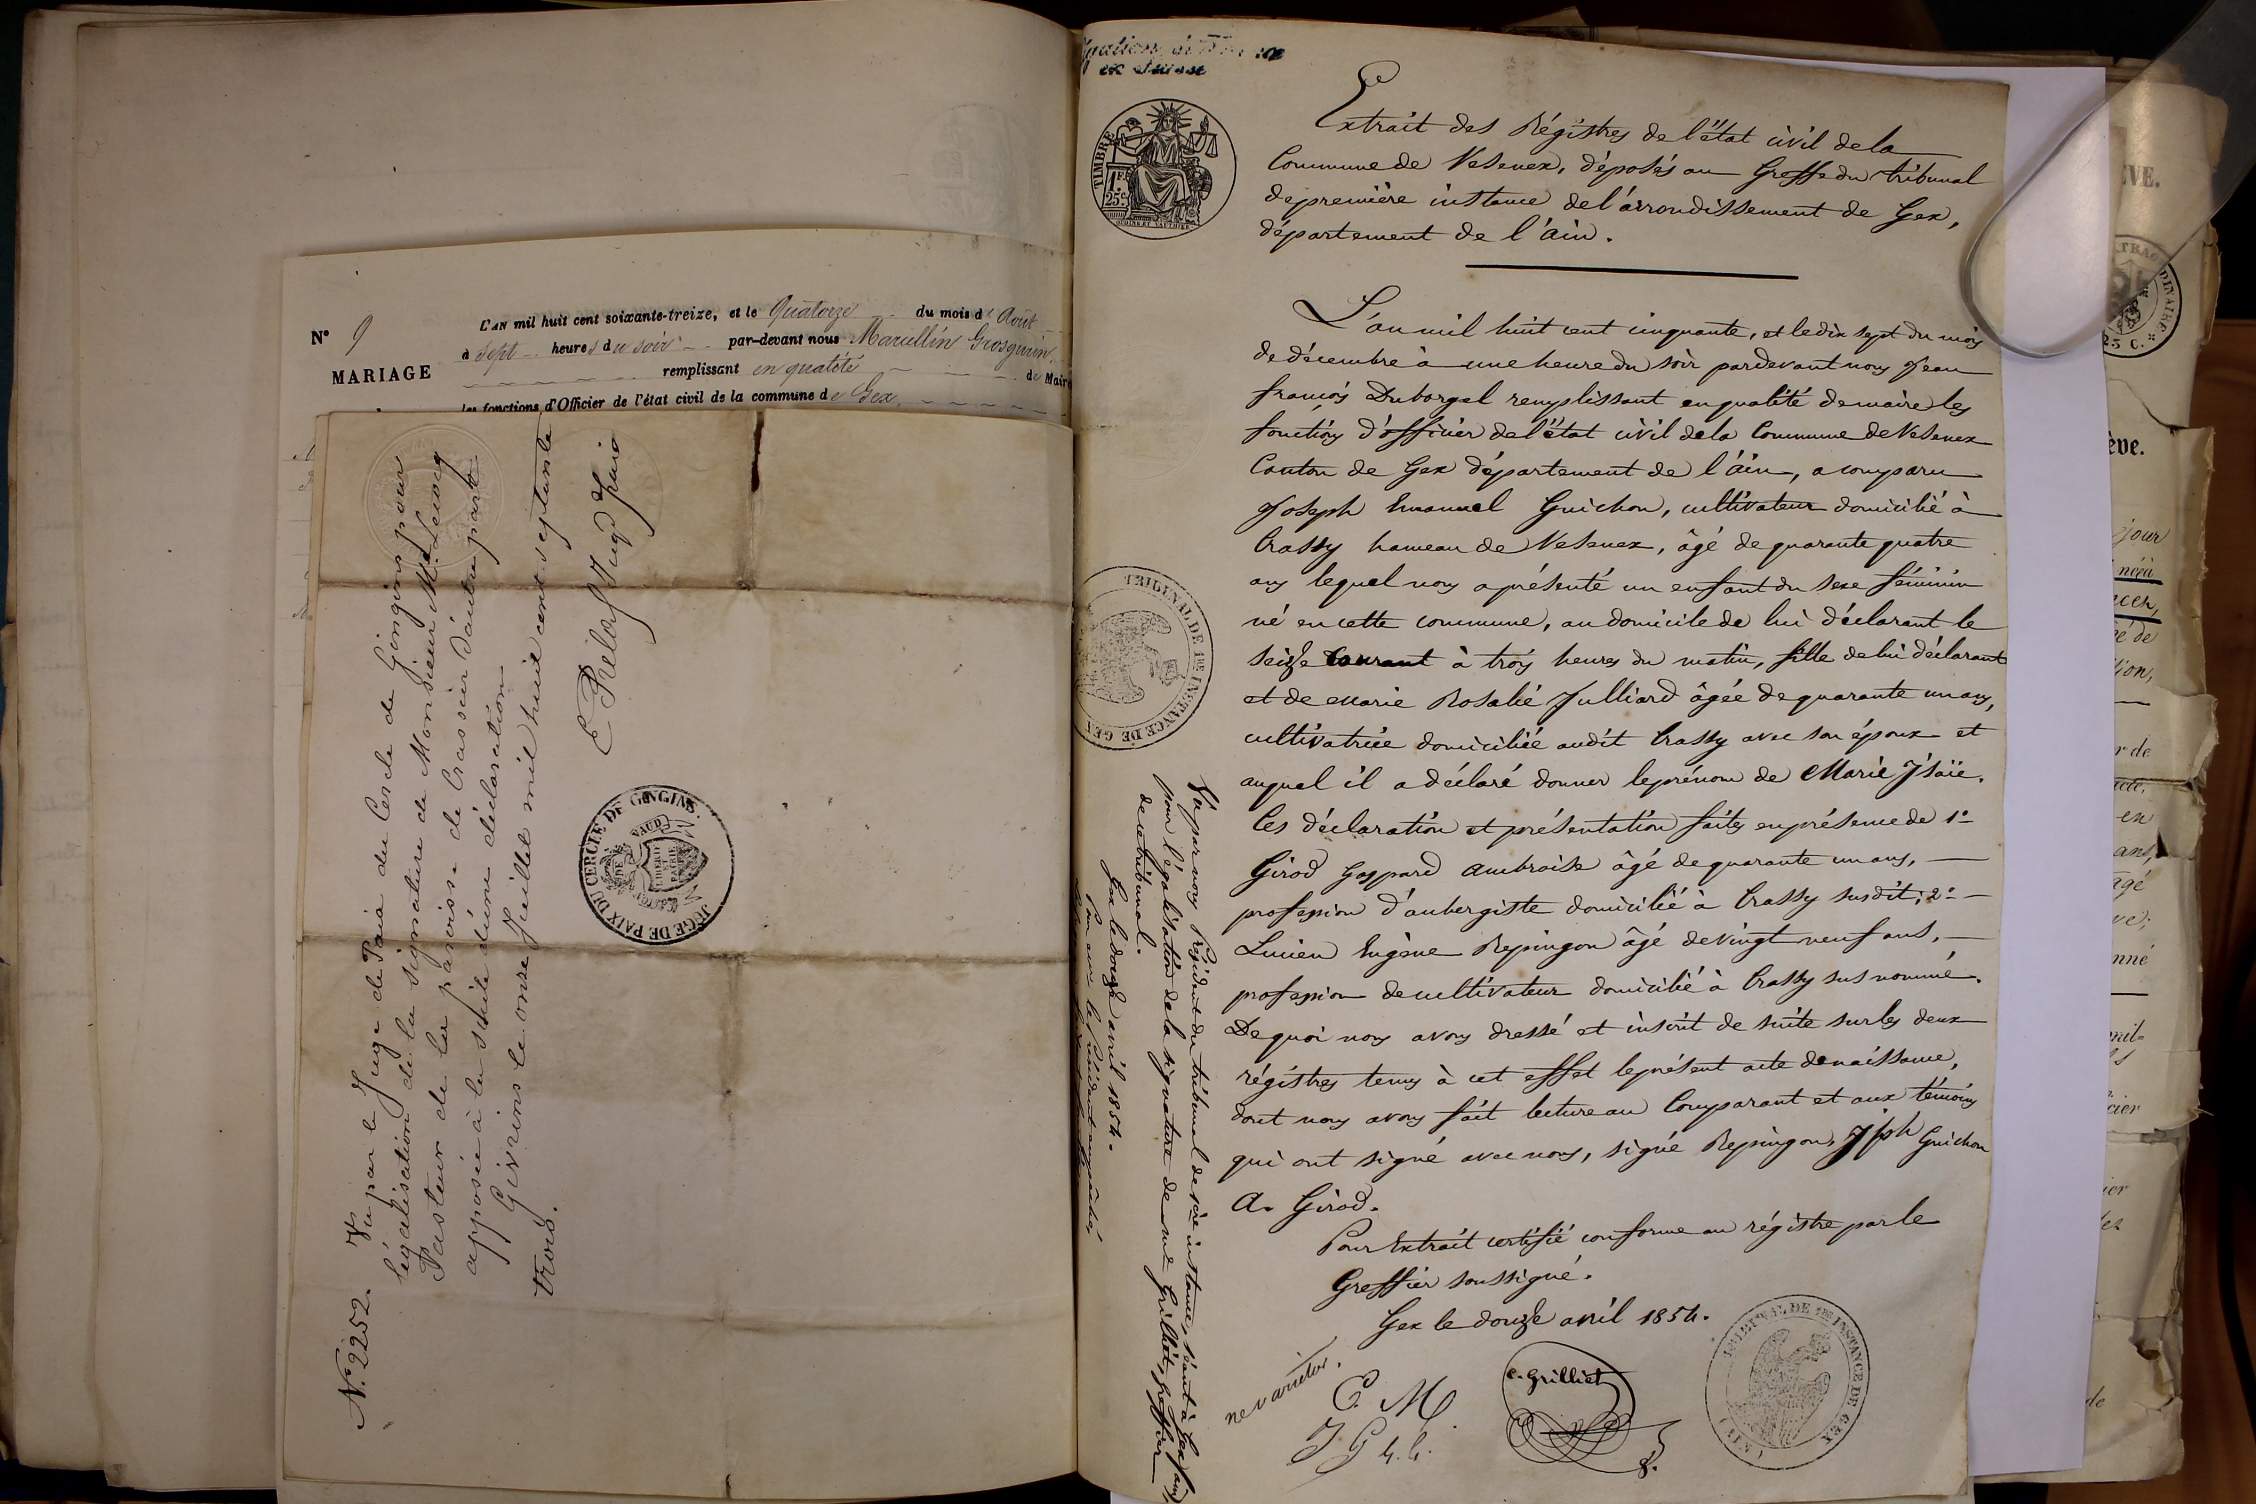 N° 9
MARIAGE
L'AN mil huit cent soixante-treize, et le Quatorze du mois d'Août
à Sept heures du soir par-devant nous Marcellin Grosgurin
remplissant en qualité de Maire
les fonctions d'Officier de l'état civil de la commune de Gex,
N.° 2252. Vu par le Juge de Paix du Cercle de Gingins pour
légalisation de la signature de Monsieur Mc Lecocq
Pasteur de la paroisse de Crassier d'autre part
apposée à la suite d'une déclaration
Givrins le onze Juillet mil huit cent septante
trois.
Juge de Paix
JUGE DE PAIX DU CERCLE DE GINGINS.
CANTON DE VAUD
LIBERTÉ ET PATRIE
en Suisse
TIMBRE
1 F. 25 C.
Extrait des Régistres de l'état civil de la
Commune de Vesenex, déposés au Greffe du tribunal
de première instance de l'arrondissement de Gex,
département de l'ain.
L'an mil huit cent cinquante, et le dix sept du mois
de décembre à une heure du soir pardevant nous Jean
françois Duborgel remplissant en qualité de maire les
fonctions d'officier de l'état civil de la Commune de Vesenex
Canton de Gex département de l'ain, a comparu
Joseph Emanuel Guichon, cultivateur domicilié à
Crassy hameau de Vesenex, âgé de quarante quatre
ans lequel nous a présenté un enfant du sexe féminin
né en cette commune, au domicile de lui déclarant le
seize Courant à trois heures du matin, fille de lui déclarant
et de Marie Rosalie Julliard âgée de quarante un ans,
cultivatrice domiciliée audit Crassy avec son époux et
auquel il a déclaré donner le prénom de Marie Isaïe.
Ces déclaration et présentation faites en présence de 1°
Girod Gaspard Ambroise âgé de quarante un ans,
profession d'aubergiste domicilié à Crassy susdit; 2°
Lucien Eugène Repingon âgé de vingt neuf ans,
profession de cultivateur domicilié à Crassy sus nommé.
De quoi nous avons dressé et inscrit de suite sur les deux
régistres tenus à cet effet le présent acte de naissance,
dont nous avons fait lecture au Comparant et aux témoins
qui ont signé avec nous, signé Repingon, Jsph Guichon
A. Girod.
Pour Extrait certifié conforme au régistre par le
Greffier soussigné.
Gex le douze avril 1854.
ne varietur.
C. M
J G
C. Grilliet
TRIBUNAL DE 1RE INSTANCE DE GEX (AIN)
TRIBUNAL DE 1RE INSTANCE DE GEX
Vu par nous Président du tribunal de 1ère instance, séant à Gex (ain)
pour légalisation de la signature de me Grilliet, greffier
de ce tribunal.
Gex le douze avril 1854.
Pour avec le Président empêché,
EVE.
25 C.
ève.
jour
de
en
ans,
âgé
nné